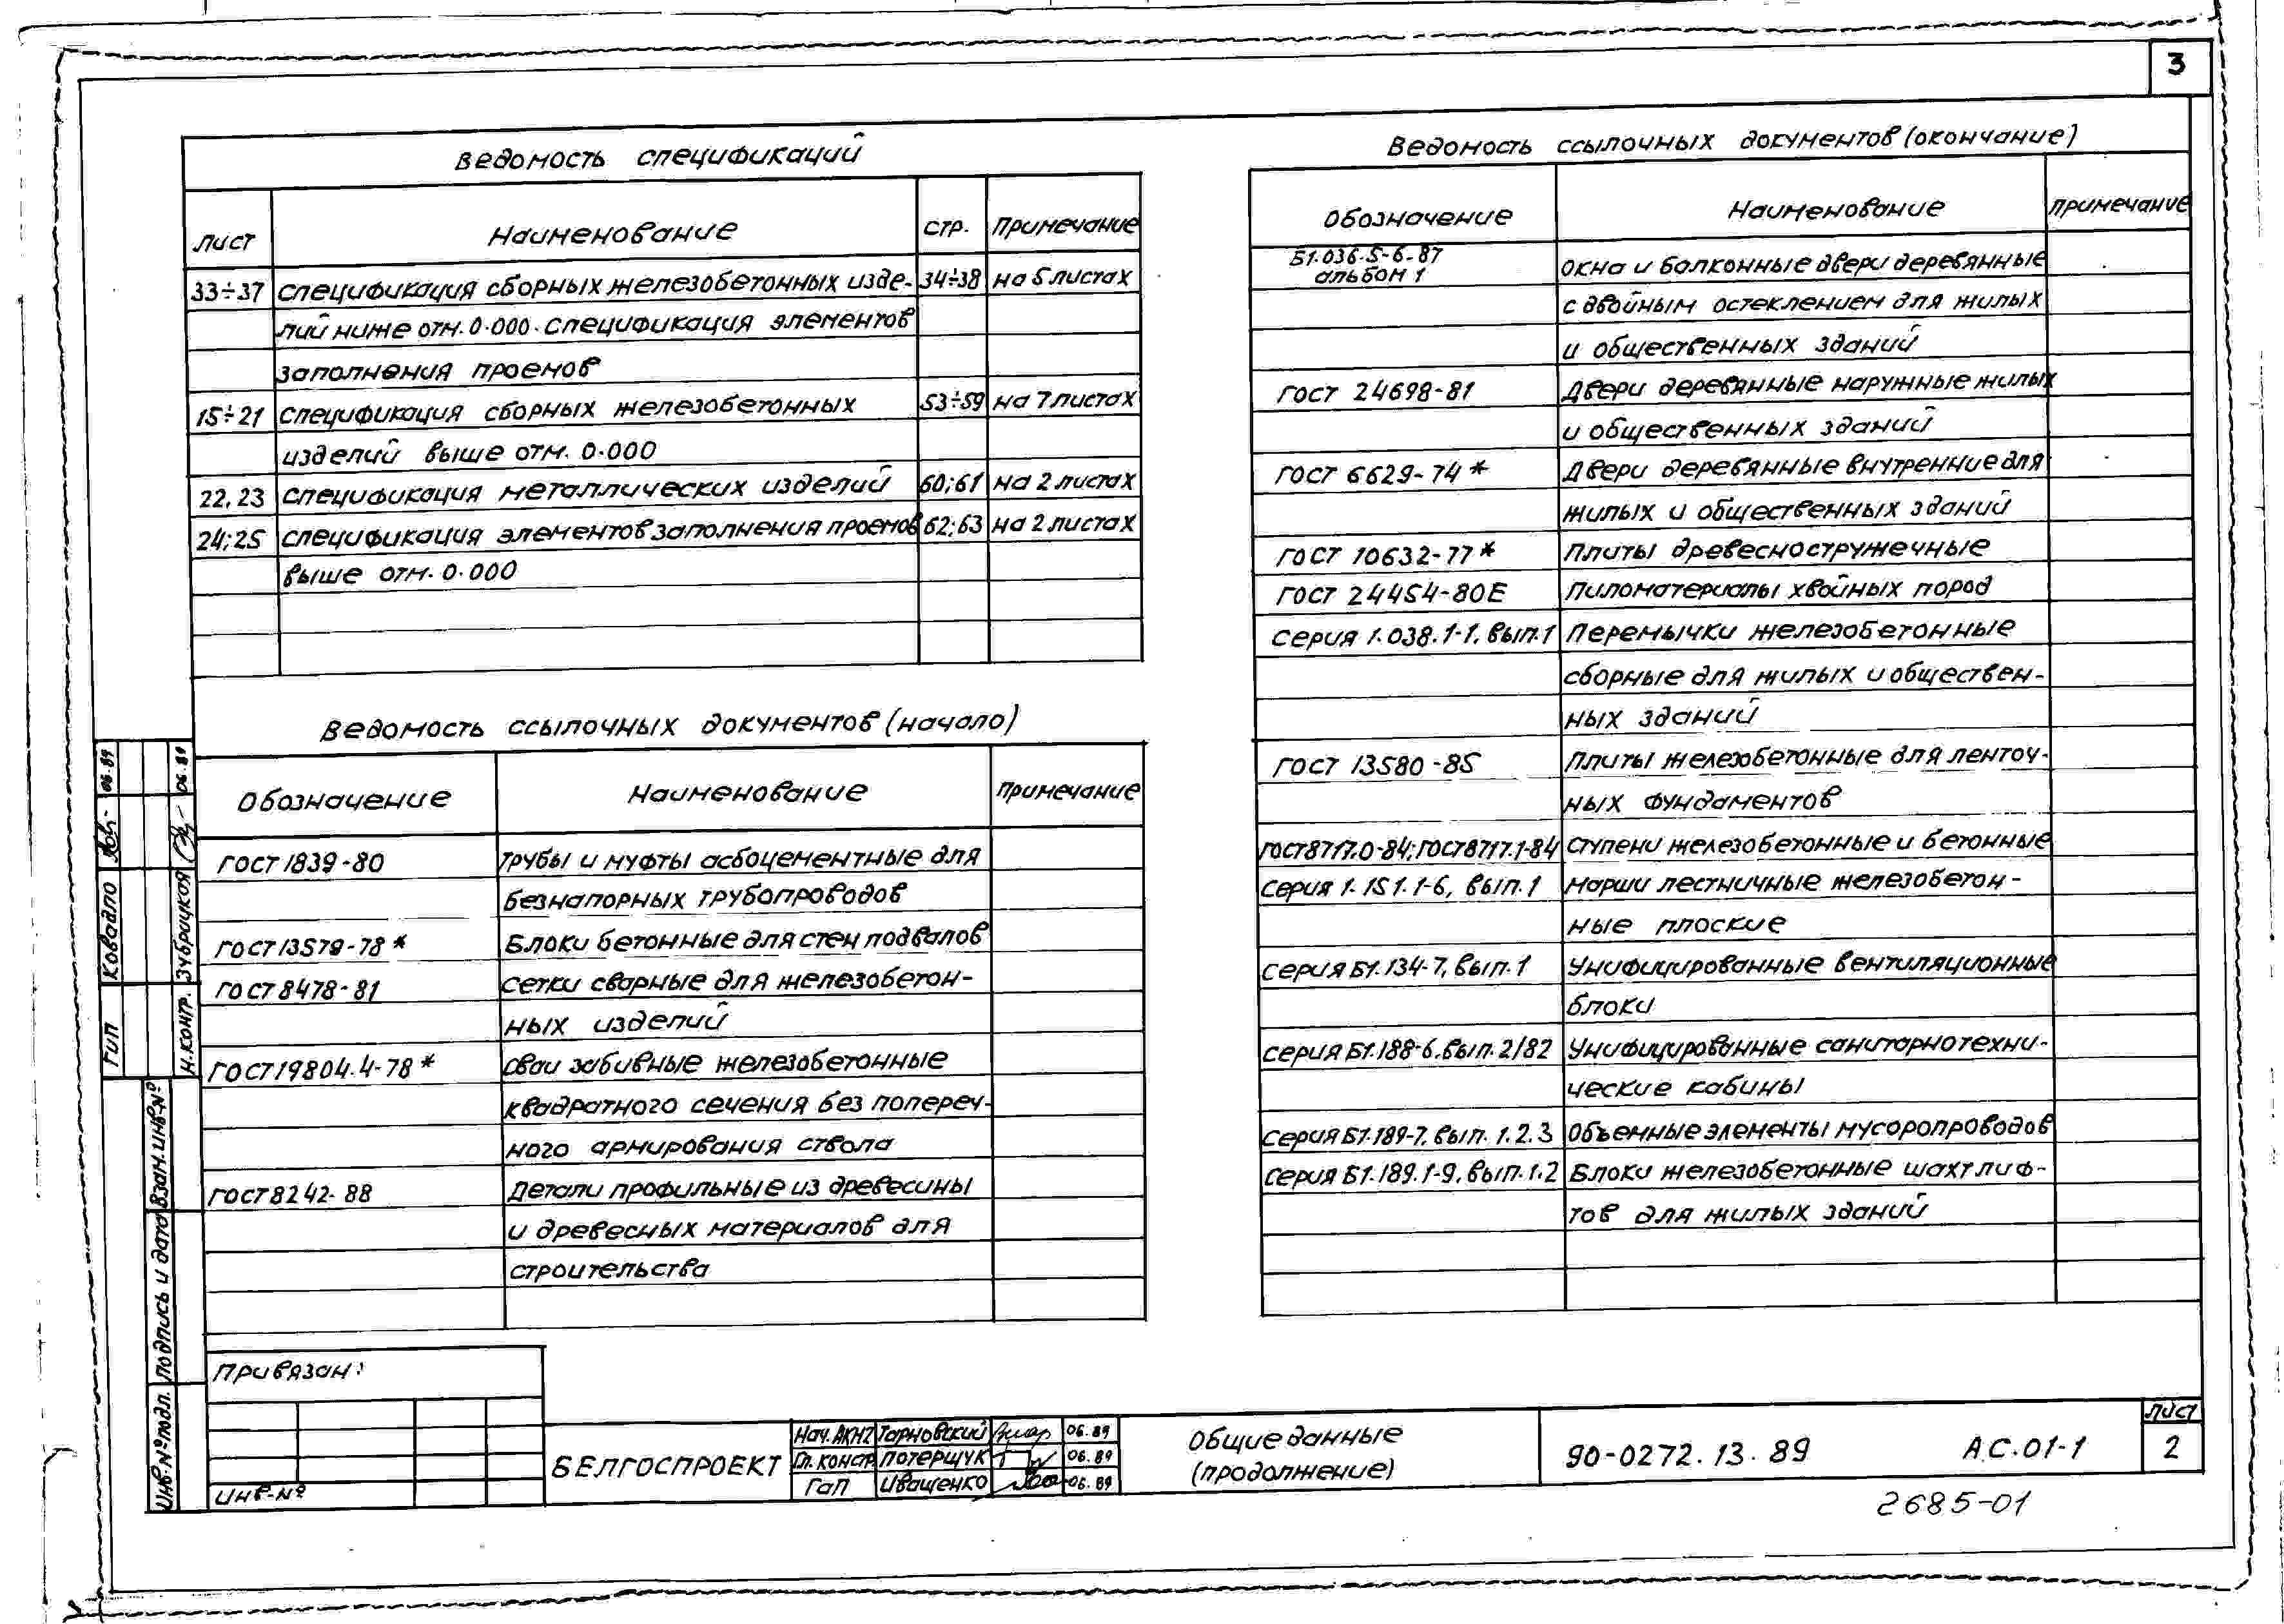 3
Ведомость спецификаций
лист Наименование стр. Примечание
33÷37 спецификация сборных железобетонных изде- 34÷38 на 5 листах
лий ниже отм. 0.000. спецификация элементов
заполнения проемов
15÷21 спецификация сборных железобетонных 53÷59 на 7 листах
изделий выше отм. 0.000
22,23 спецификация металлических изделий 60;61 на 2 листах
24;25 спецификация элементов заполнения проемов 62;63 на 2 листах
выше отм. 0.000
Ведомость ссылочных документов (начало)
Обозначение Наименование Примечание
ГОСТ 1839-80 трубы и муфты асбоцементные для
безнапорных трубопроводов
ГОСТ 13579-78* Блоки бетонные для стен подвалов
ГОСТ 8478-81 Сетки сварные для железобетон-
ных изделий
ГОСТ 19804.4-78* Сваи забивные железобетонные
квадратного сечения без попереч-
ного армирования ствола
ГОСТ 8242-88 Детали профильные из древесины
и древесных материалов для
строительства
Ведомость ссылочных документов (окончание)
Обозначение Наименование Примечание
Б1.036.5-6.87
альбом 1 Окна и балконные двери деревянные
с двойным остеклением для жилых
и общественных зданий
ГОСТ 24698-81 Двери деревянные наружные жилых
и общественных зданий
ГОСТ 6629-74* Двери деревянные внутренние для
жилых и общественных зданий
ГОСТ 10632-77* Плиты древесностружечные
ГОСТ 24454-80Е Пиломатериалы хвойных пород
Серия 1.038.1-1, вып.1 Перемычки железобетонные
сборные для жилых и обществен-
ных зданий
ГОСТ 13580-85 Плиты железобетонные для ленточ-
ных фундаментов
ГОСТ 8717.0-84; ГОСТ 8717.1-84 Ступени железобетонные и бетонные
Серия 1.151.1-6, вып.1 Марши лестничные железобетон-
ные плоские
Серия Б1.134-7, вып.1 Унифицированные вентиляционные
блоки
Серия Б1.188-6, вып.2/82 Унифицированные санитарнотехни-
ческие кабины
Серия Б1.189-7, вып. 1.2.3 Объемные элементы мусоропроводов
Серия Б1.189.1-9, вып.1.2 Блоки железобетонные шахт лиф-
тов для жилых зданий
ГИП Ковадло 06.89
Н.контр. Зубрицкая 06.89
Инв.№подл. Подпись и дата Взам.инв.№
Привязан:
Инв.№
БЕЛГОСПРОЕКТ
Нач.АКМ7 Тарновский 06.89
Гл.констр. Потерщук 06.89
ГАП Иващенко 06.89
Общие данные
(продолжение)
90-0272.13.89 АС.01-1
лист
2
2685-01